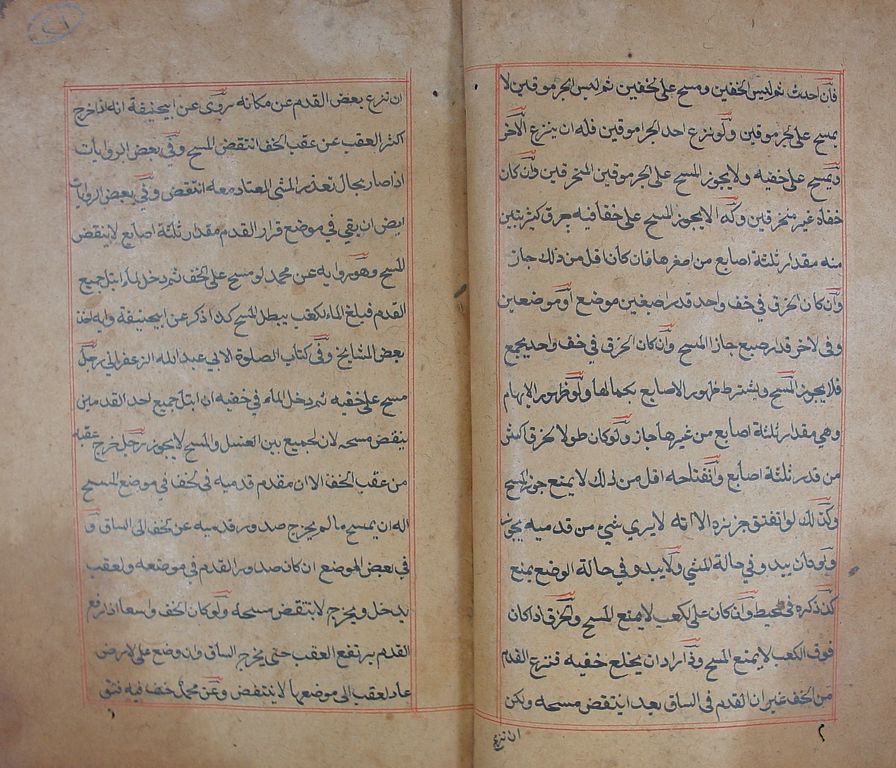 فان احدث ثم لبس الخفين ومسح على الخفين ثم لبس الجرموقين لا
يمسح على الجرموقين ولو نزع احد الجرموقين فله ان ينزع الآخر
ويمسح على خفيه ولا يجوز المسح على الجرموقين المنخرقين وان كان
خفاه غير منخرقين وكذا لا يجوز المسح على خف فيه خرق كثير يتبين
منه مقدار ثلثة اصابع من اصغرها فان كان اقل من ذلك جاز
وان كان الخرق في خف واحد قدر اصبعين موضع او موضعين
وفى الاخر قدر اصبع جاز المسح وان كان الخرق في خف واحد يجمع
فلا يجوز المسح ويشترط ظهور الاصابع بكمالها ولو ظهور الابهام
وهي مقدار ثلثة اصابع من غيرها جاز ولو كان طول الخرق اكثر
من قدر ثلثة اصابع وانفتاحه اقل من ذلك لا يمنع جواز المسح
وكذلك لو انفتق خرزه الا انه لا يرى شيئ من قدميه يجوز
ولو كان يبدو في حالة المشي ولا يبدو في حالة الوضع يمنع
كذا ذكره في المحيط وان كان على الكعب لا يمنع المسح والخرق اذا كان
فوق الكعب لا يمنع المسح واذا اراد ان يخلع خفيه فنزع القدم
من الخف غير ان القدم في الساق بعد انتقض مسحه ولكن
ان نزع
٢
ان نزع بعض القدم عن مكانه روى عن ابيحنيفة انه اذا خرج
اكثر العقب عن عقب الخف انتقض المسح وفي بعض الروايات
اذا صار بحال تعذر المشي المعتاد معه انتقض وفي بعض الروايات
ايض ان بقي في موضع قرار القدم مقدار ثلثة اصابع لا ينتقض
المسح وهو رواية عن محمد لو مسح على الخف ثم دخل الماء ابتل جميع
القدم فبلغ الماء الكعب يبطل المسح كذا ذكر عن ابيحنيفة وبه اخذ
بعض المشايخ وفي كتاب الصلوة لابي عبد الله الزعفراني رجل
مسح على خفيه ثم دخل الماء في خفيه ان ابتل جميع احد القدمين
ينتقض مسحه لان لجميع بين الغسل والمسح لا يجوز رجل خرج عقبه
من عقب الخف الا ان مقدم قدميه في الخف في موضع المسح
اله ان يمسح ما لم يخرج صدور قدميه عن الخف الى الساق و
في بعض الموضع ان كان صدور القدم في موضعه والعقب
يدخل ويخرج لا ينتقض مسحه ولو كان الخف واسعا اذا رفع
القدم يرتفع العقب حتى يخرج الساق وان وضع على الارض
عاد العقب الى موضعها لا ينتقض وعن محمد خف فيه فتق
١